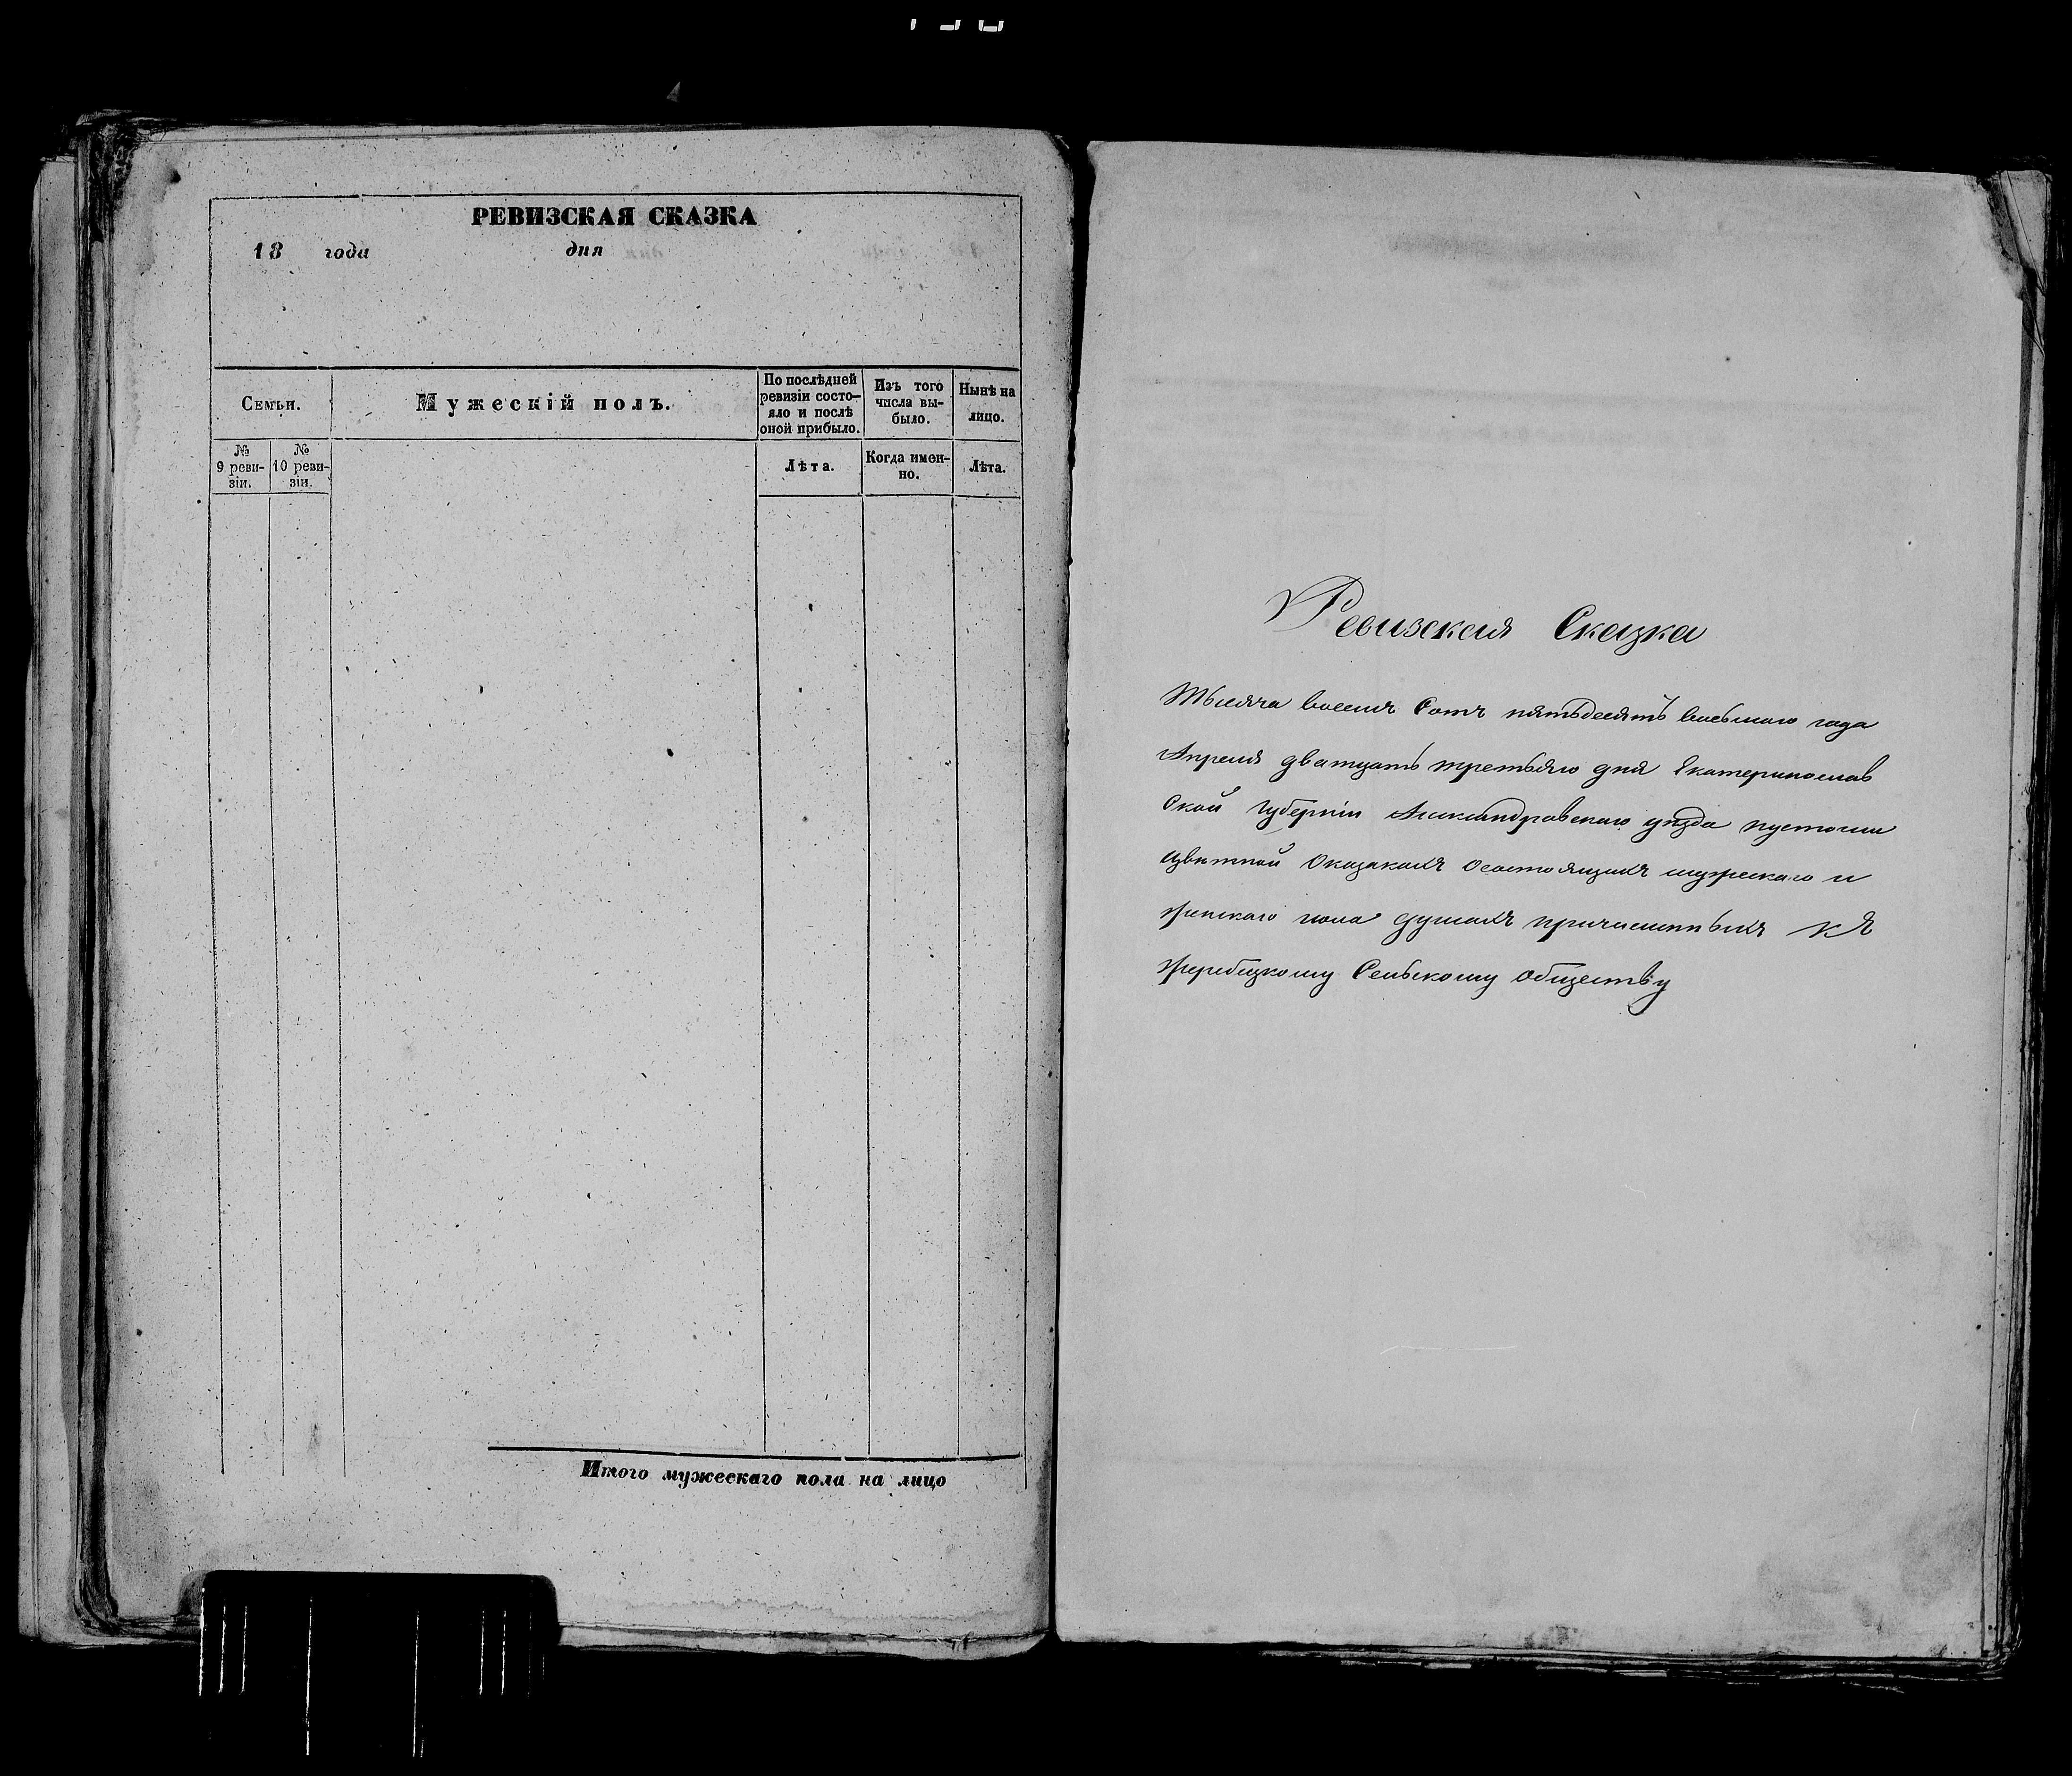 РЕВИЗСКАЯ СКАЗКА
18 года дня
Семьи.
Мужескій полъ.
По послѣдней ревизіи состо-
яло и послѣ оной прибыло.
Изъ того числа вы-
было.
Нынѣ на лицо.
№ 9 реви-
зіи.
№ 10 реви-
зіи.
Лѣта.
Когда имен-
но.
Лѣта.
Итого мужескаго пола на лицо
Ревизская Сказка
Тысяча восемь Сотъ пятьдесятъ восьмого года
Апреля дватцать третьяго дня Екатеринослав
Ской Губерніи Александровскаго уѣзда пустоши
Цвѣтной Оказакахъ Осостоящихъ мужескаго и
женскаго пола душахъ причисленныхъ КЪ
жеребецкому Сельскому Обществу